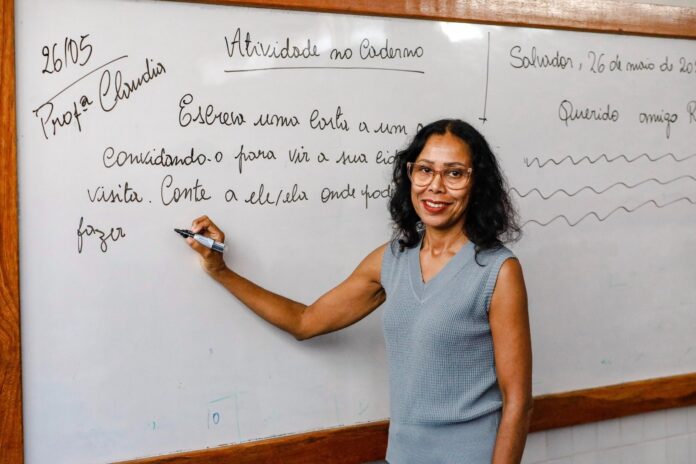 26/05
Profª Claudia
Atividade no Caderno
Escreva uma carta a um a
convidando-o para vir a sua cid
visita. Conte a ele/ela onde pod
fazer
10
Salvador, 26 de maio de 20
Querido amigo R